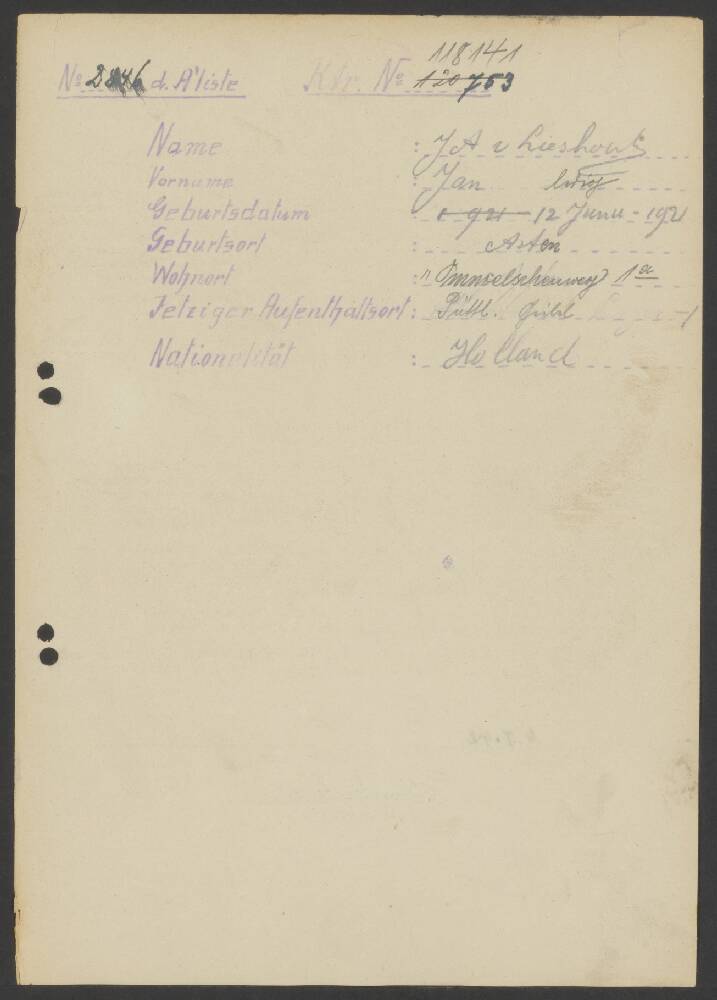 No 2846 d. A'liste Ktr. No 118141
120753
Name : J A v Lieshout
Vorname : Jan ledig
Geburtsdatum : 12 Junu - 1921
Geburtsort : Asten
Wohnort : 1a
Jetziger Aufenthaltsort : Püttl.
Nationalität : Holland